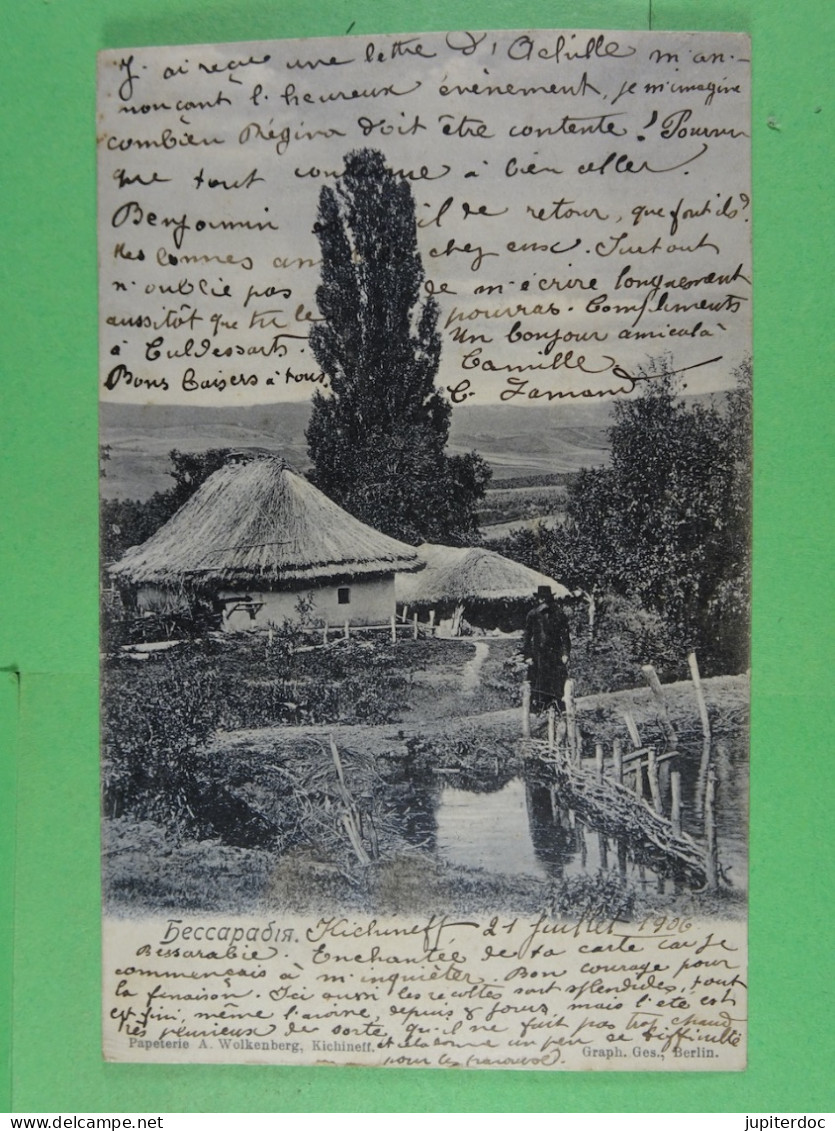 J'ai reçu une lettre d'Achille m'an-
nonçant l'heureux événement, je m'imagine
combien Régina doit être contente! Pourvu
que tout continue à bien aller.
Benjamin il de retour, que font ils?
des bonnes chez eux. Surtout
n'oublie pas de m'écrire longuement
aussitôt que tu le pourras. Compliments
à Culdessarts. Un bonjour amical à
Camille
Bons baisers à tous. C. Jamand
Бессарабія. Kichineff 21 Juillet 1906
Bessarabie. Enchantée de ta carte car je
commençais à m'inquiéter. Bon courage pour
la finaison. Ici aussi les récoltes sont splendides, tout
est fini, même l'avoine, depuis 8 jours, mais l'été est
très pluvieux de sorte qu'il ne fait pas trop chaud
et cela donne un peu de difficulté
pour les travaux.
Papeterie A. Wolkenberg, Kichineff. Graph. Ges., Berlin.
jupiterdoc